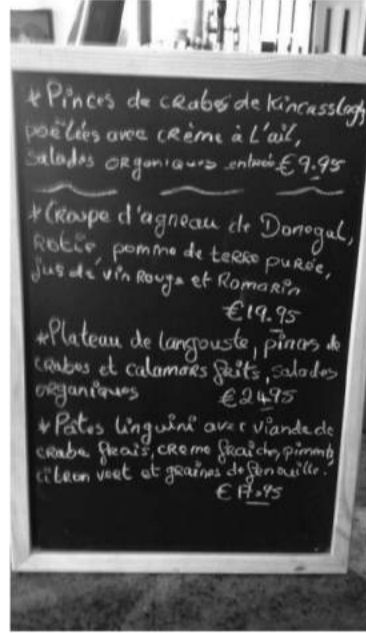 * Pinces de crabes de Kincasslagh,
poêlées avec crème à l'ail,
salades organiques entreé €9.95
* Croupe d'agneau de Donegal,
Rotie, pomme de terre purée,
jus de vin Rouge et Romarin
€19.95
* Plateau de langouste, pinces de
crabes et calamars frits, salades
organiques €24.95
* Pates linguini avec viande de
crabe frais, creme fraiche, piment,
citron vert et graines de fenouille.
€17.95